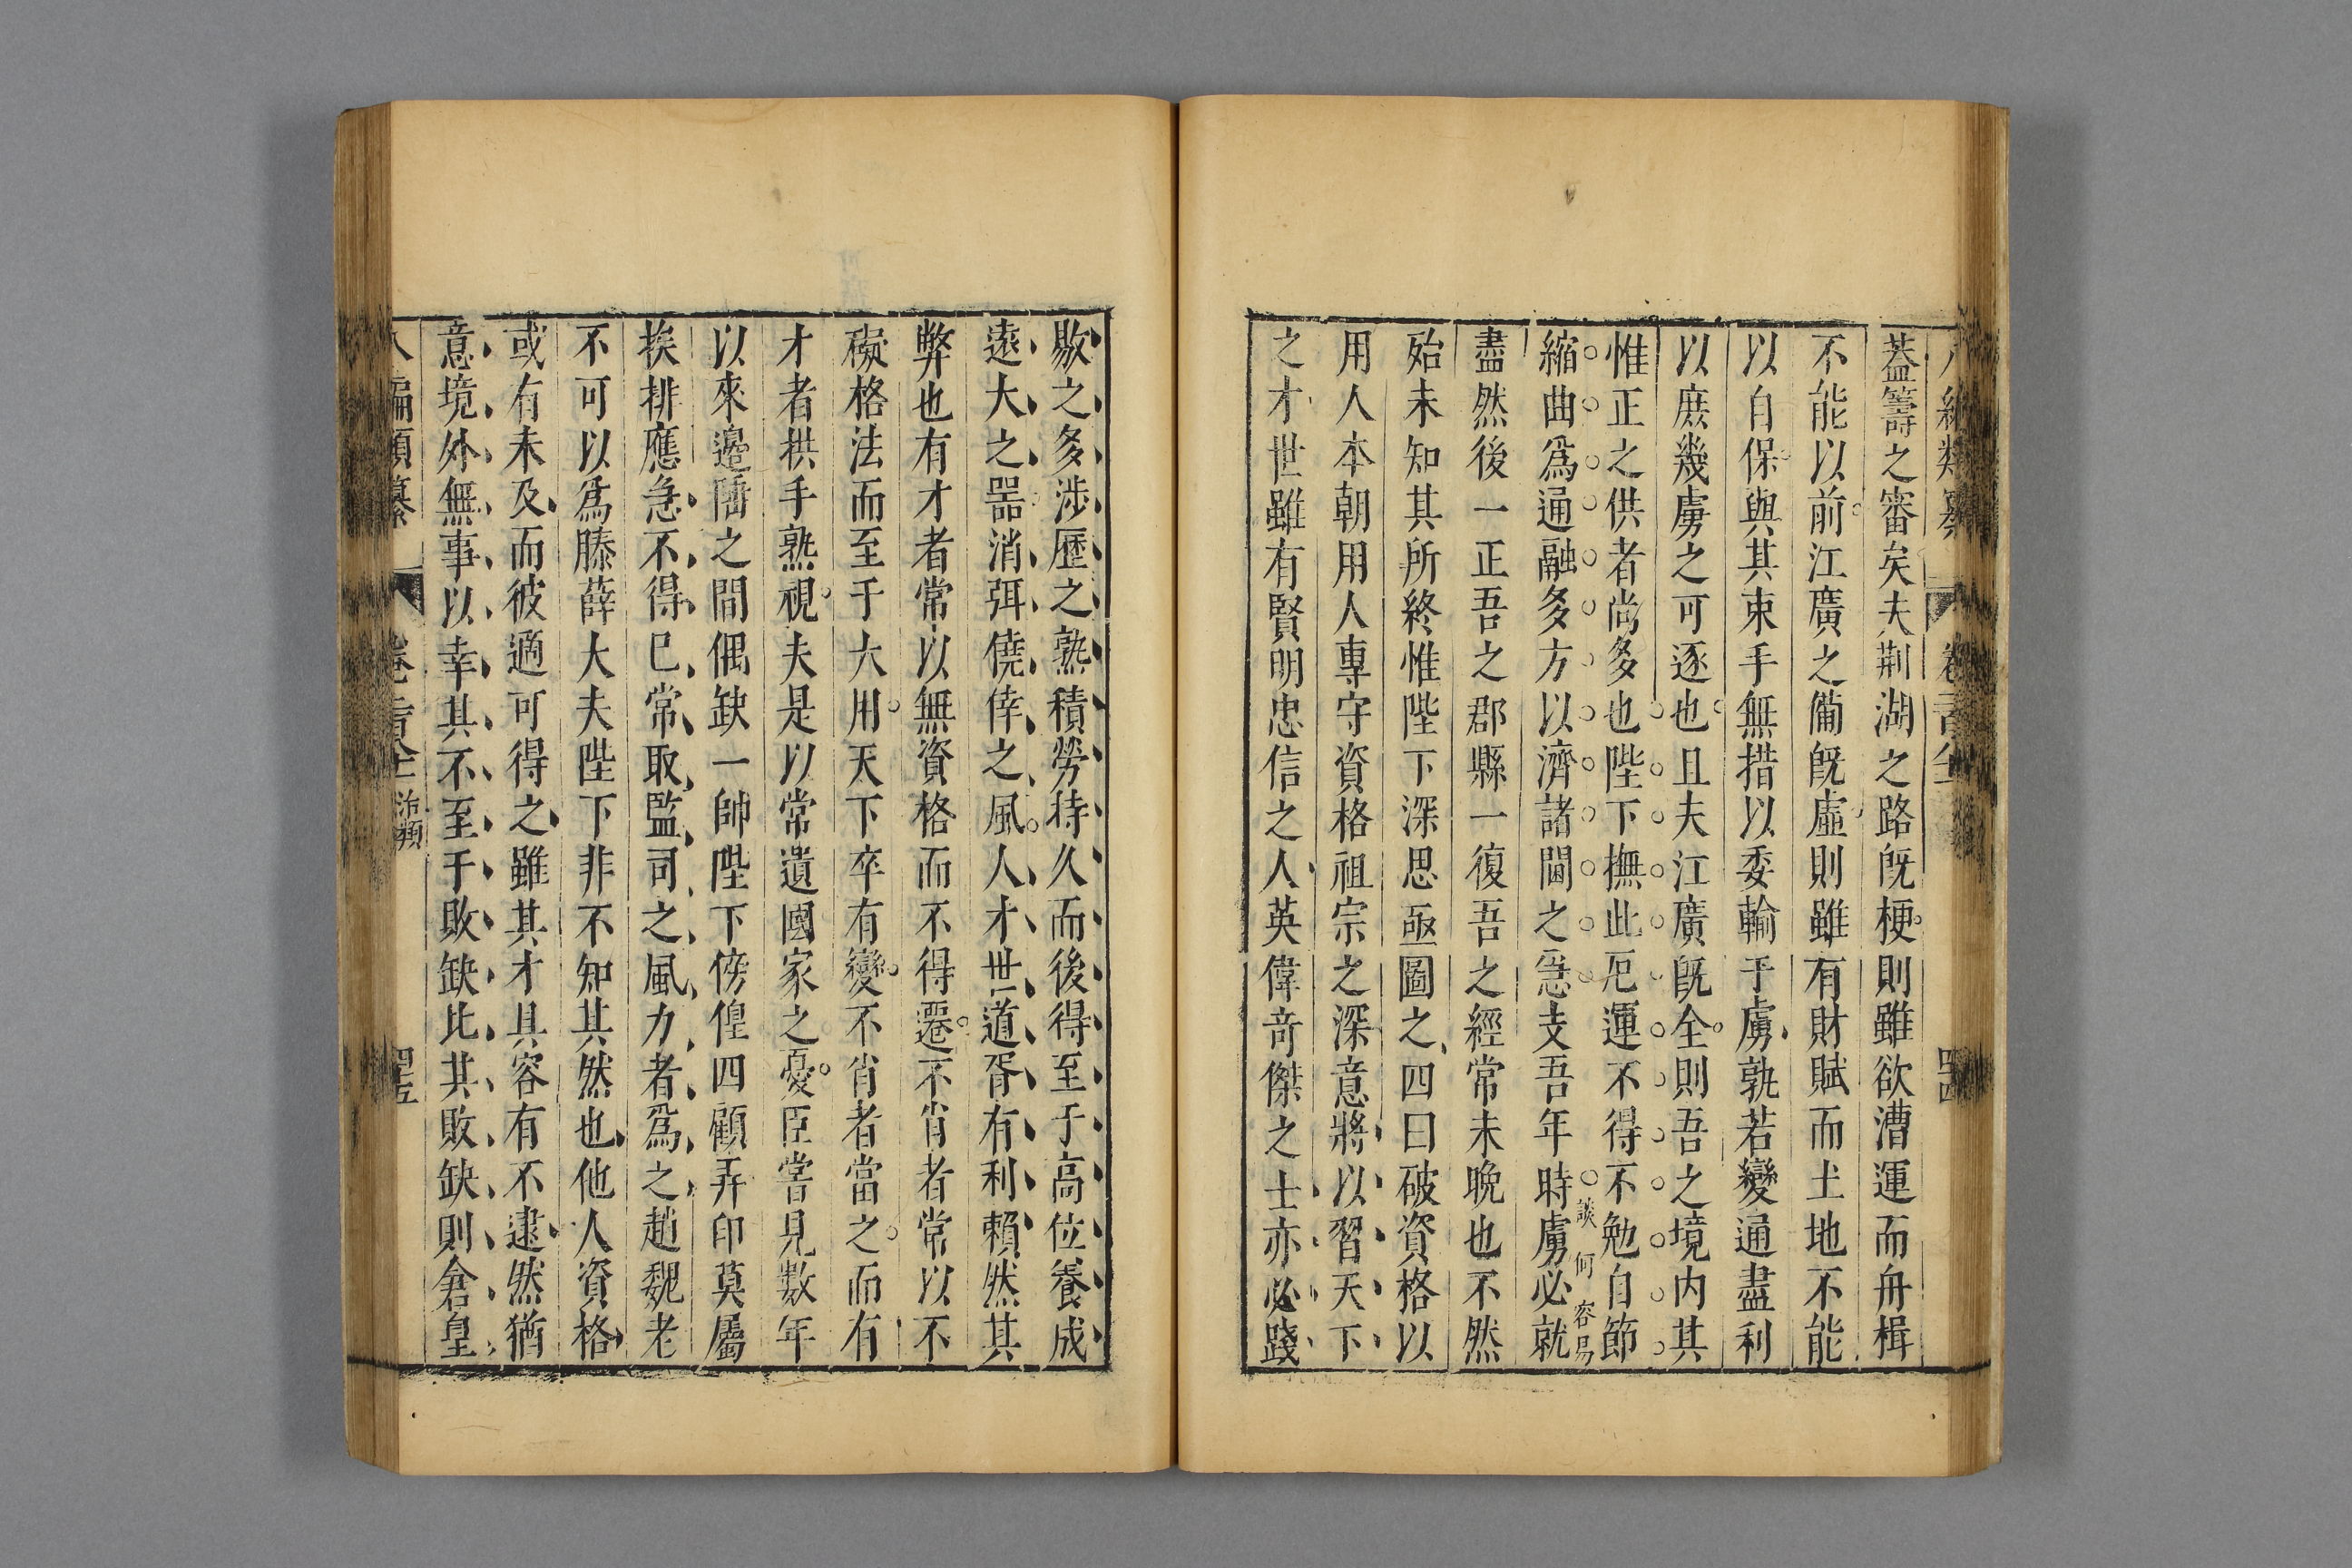 蓋籌之審矣夫荆湖之路旣梗則雖欲漕運而舟楫
不能以前江廣之備旣虛則雖有財賦而土地不能
以自保與其束手無措以委輸于虜孰若變通盡利
以庶幾虜之可逐也且夫江廣旣全則吾之境内其
惟正之供者尚多也陛下撫此厄運不得不勉自節
縮曲爲通融多方以濟諸閫之急支吾年時虜必就
談何容易
盡然後一正吾之郡縣一復吾之經常未晚也不然
殆未知其所終惟陛下深思亟圖之四曰破資格以
用人本朝用人專守資格祖宗之深意將以習天下
之才世雖有賢明忠信之人英偉竒傑之士亦必踐
敭之多涉歷之熟積勞待久而後得至于高位養成
遠大之噐消弭僥倖之風人才世道胥有利賴然其
弊也有才者常以無資格而不得遷不肖者常以不
礙格法而至于大用天下卒有變不肖者當之而有
才者拱手熟視夫是以常遺國家之憂臣嘗見數年
以來邊陲之間偶缺一帥陛下傍偟四顧弄印莫屬
挨排應急不得已常取監司之風力者爲之趙魏老
不可以爲滕薛大夫陛下非不知其然也他人資格
或有未及而彼適可得之雖其才具容有不逮然猶
意境外無事以幸其不至于敗缺比其敗缺則倉皇
八編類纂 卷 治類